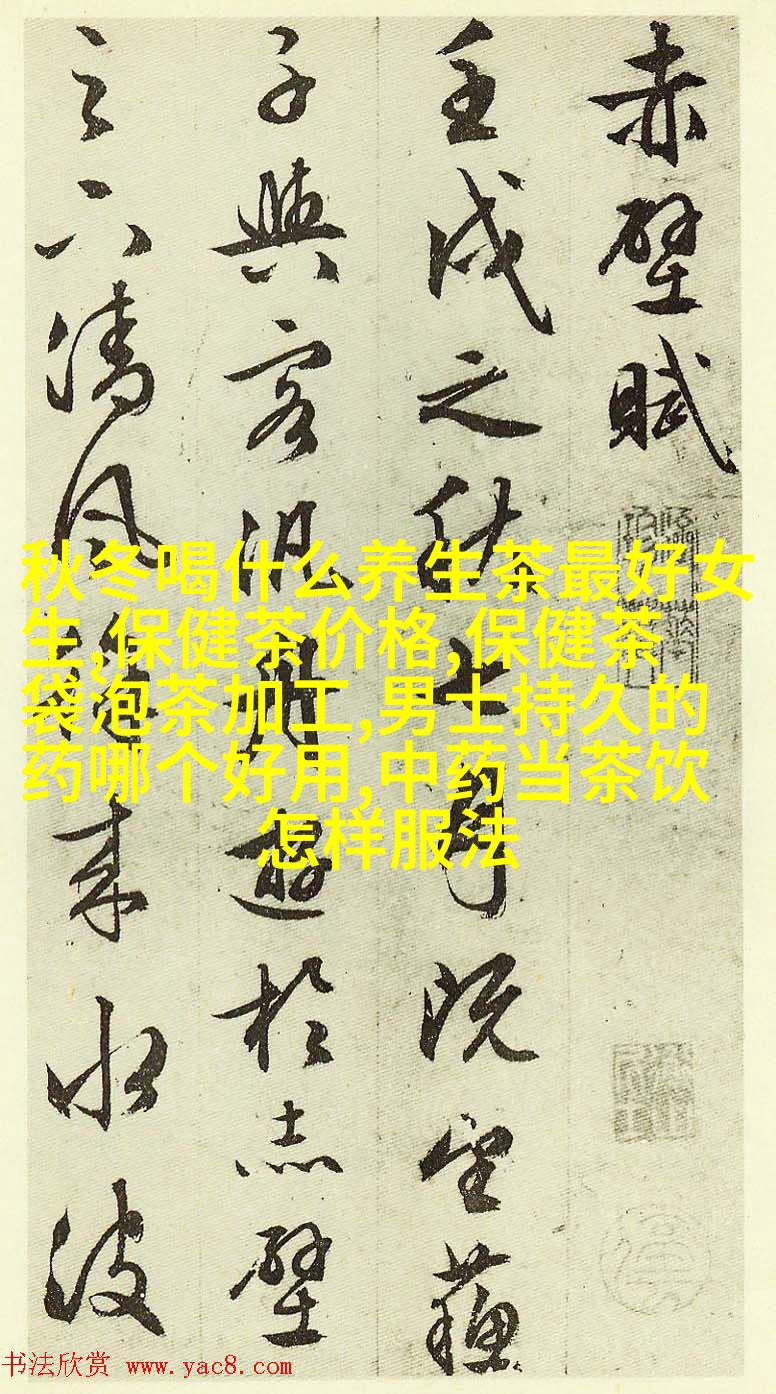 赤壁賦
壬戌之秋七月既望蘇
子與客泛舟遊於赤壁
之下清風徐來水波
秋冬喝什么养生茶最好女
生,保健茶价格,保健茶
袋泡茶加工,男士持久的
药哪个好用,中药当茶饮
怎样服法
书法欣赏 www.yac8.com